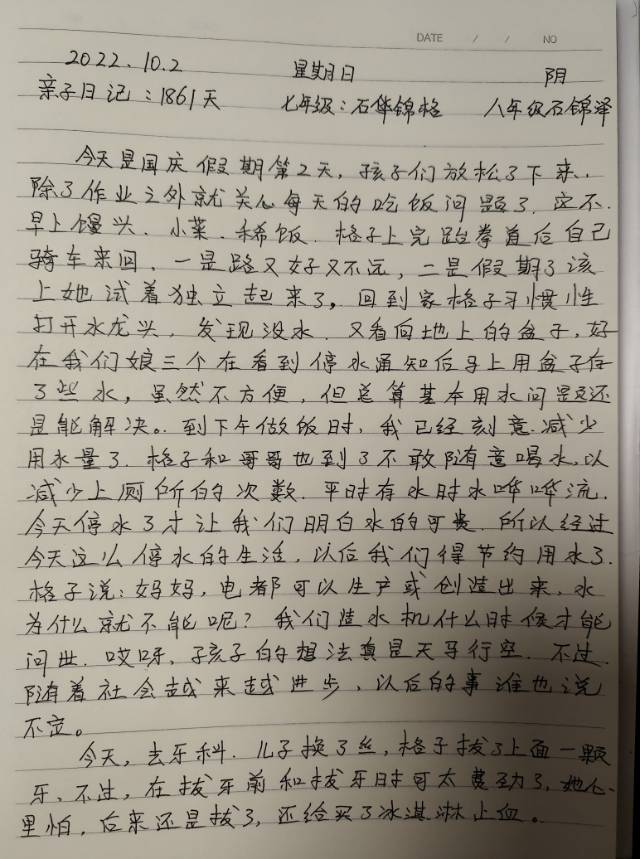 DATE / / NO
2022.10.2 星期日 阴
亲子日记：1861天 七年级：石华锦格 八年级石锦泽
今天是国庆假期第2天，孩子们放松了下来，
除了作业之外就关心每天的吃饭问题了．这不．
早上馒头．小菜．稀饭．格子上完跆拳道后自己
骑车来回．一是路又好又不远，二是假期了该
上她试着独立起来了，回到家格子习惯性
打开水龙头，发现没水．又看向地上的盆子，好
在我们娘三个在看到停水通知后马上用盆子存
了些水，虽然不方便，但总算基本用水问题还
是能解决。到下午做饭时，我已经刻意减少
用水量了．格子和哥哥也到了不敢随意喝水，以
减少上厕所的次数．平时有水时水哗哗流．
今天停水了才让我们明白水的可贵．所以经过
今天这么停水的生活，以后我们得节约用水了．
格子说：妈妈，电都可以生产或创造出来，水
为什么就不能呢？我们造水机什么时候才能
问世．哎呀，孩子的想法真是天马行空．不过．
随着社会越来越进步，以后的事谁也说
不定。
今天，去牙科．儿子换了丝，格子拔了上面一颗
牙、不过，在拔牙前和拔牙时可太费劲了，她心
里怕，后来还是拔了，还给买了冰淇淋止血。